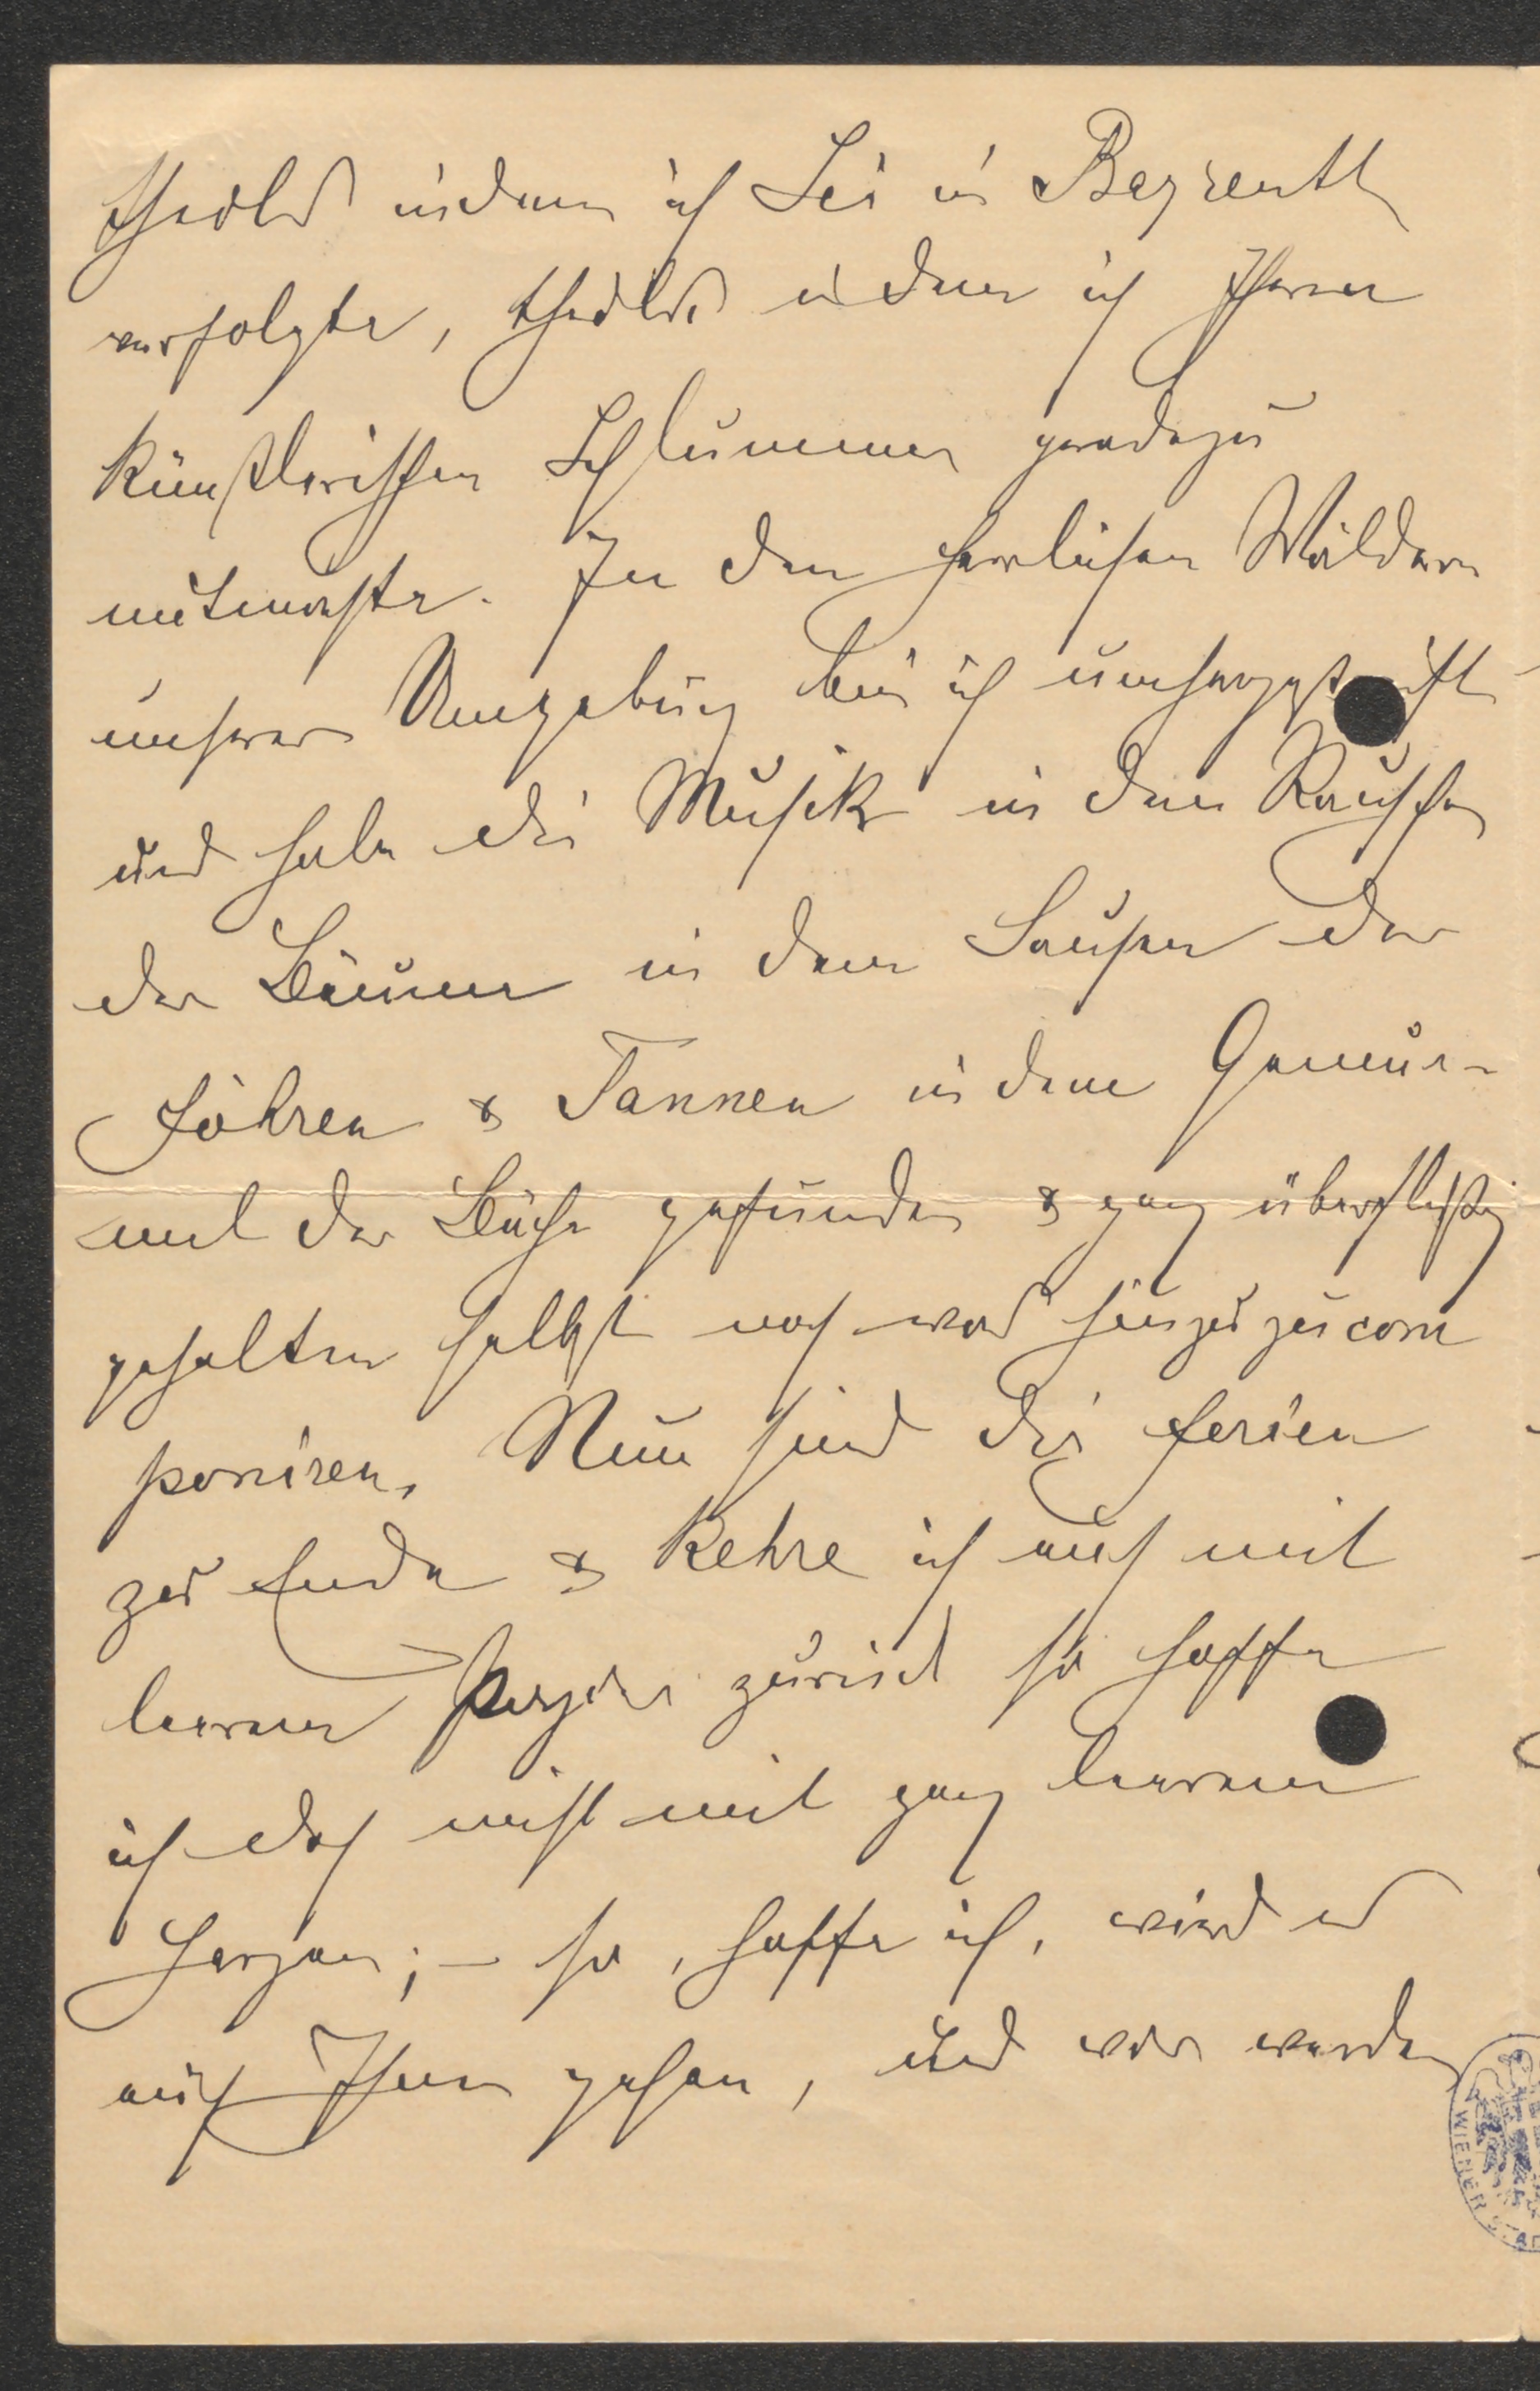 theils indem ich Sie in Bayreuth
verfolgte, theils indem ich Ihren
künstlerischen Schlummer geradezu
mitmachte. In den herrlichen Wäldern
unserer Umgebung bin ich umhergestreift
und habe die Musik in dem Rauschen
der Bäume in dem Sausen der
Föhren & Tannen in dem Gemur-
mel der Bäche gefunden & ganz überflüßig
gehalten selbst noch was hinzuzucom
poniren. Nun sind die Ferien
zu Ende & kehre ich auch mit
leerem zurück so hoffe
ich doch nicht mit ganz leerem
Herzen; – so, hoffe ich, wird es
auch Ihnen gehen, und wir werden
WIENER STAD